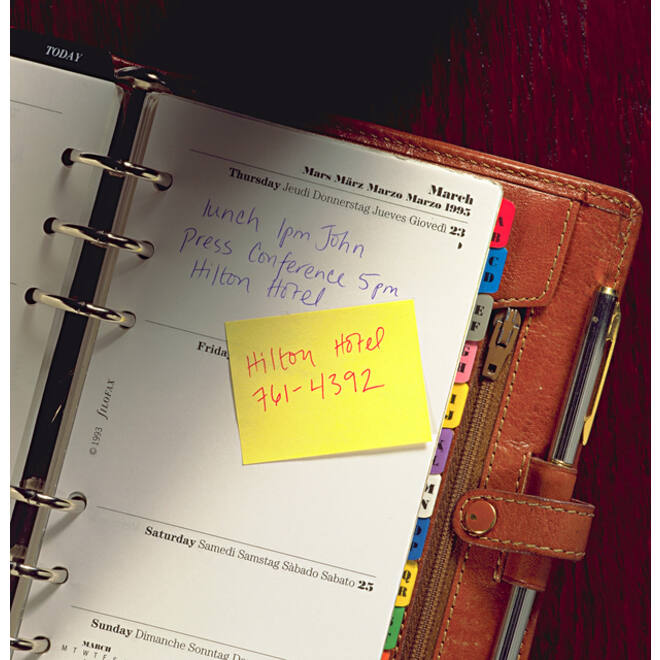 TODAY
March
Mars März Marzo Marzo 1995
Thursday Jeudi Donnerstag Jueves Giovedì 23
lunch 1pm John
Press Conference 5pm
Hilton Hotel
Friday
Hilton Hotel
761-4392
© 1993 fILOFAX
Saturday Samedi Samstag Sàbado Sabato 25
Sunday Dimanche Sonntag
MARCH
M T W T F S
A
B
C
D
E
F
G
H
I
J
M
N
Q
R